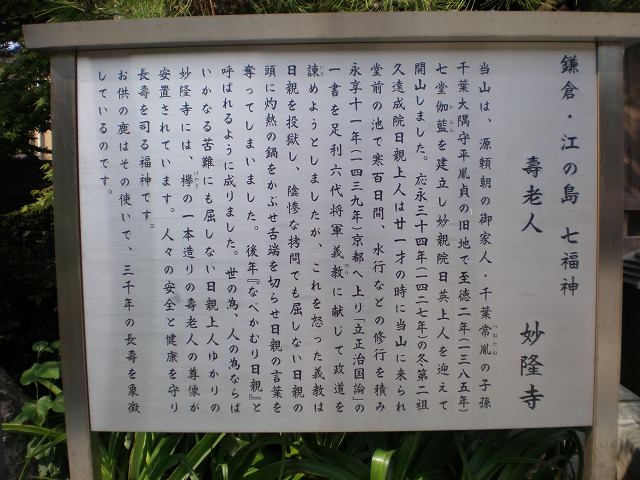 鎌倉・江の島 七福神
壽老人 妙隆寺
当山は、源頼朝の御家人・千葉常胤の子孫
つねたね
千葉大隅守平胤貞の旧地で至徳二年(一三八五年)
七堂伽藍を建立し妙親院日英上人を迎えて
がらん
開山しました。応永三十四年(一四二七年)の冬第二祖
久遠成院日親上人は廿一才の時に当山に来られ
堂前の池で寒百日間、水行などの修行を積み
永享十一年(一四三九年)京都へ上り「立正治国論」の
一書を足利六代将軍義教に献じて政道を
のり
諌めようとしましたが、これを怒った義教は
いさ
日親を投獄し、陰惨な拷問でも屈しない日親の
頭に灼熱の鍋をかぶせ舌端を切らせ日親の言葉を
奪ってしまいました。後年『なべかむり日親』と
呼ばれるように成りました。世の為、人の為ならば
いかなる苦難にも屈しない日親上人ゆかりの
妙隆寺には、欅の一本造りの壽老人の尊像が
けやき
安置されています。人々の安全と健康を守り
長壽を司る福神です。
お供の鹿はその使いで、三千年の長壽を象徴
しているのです。